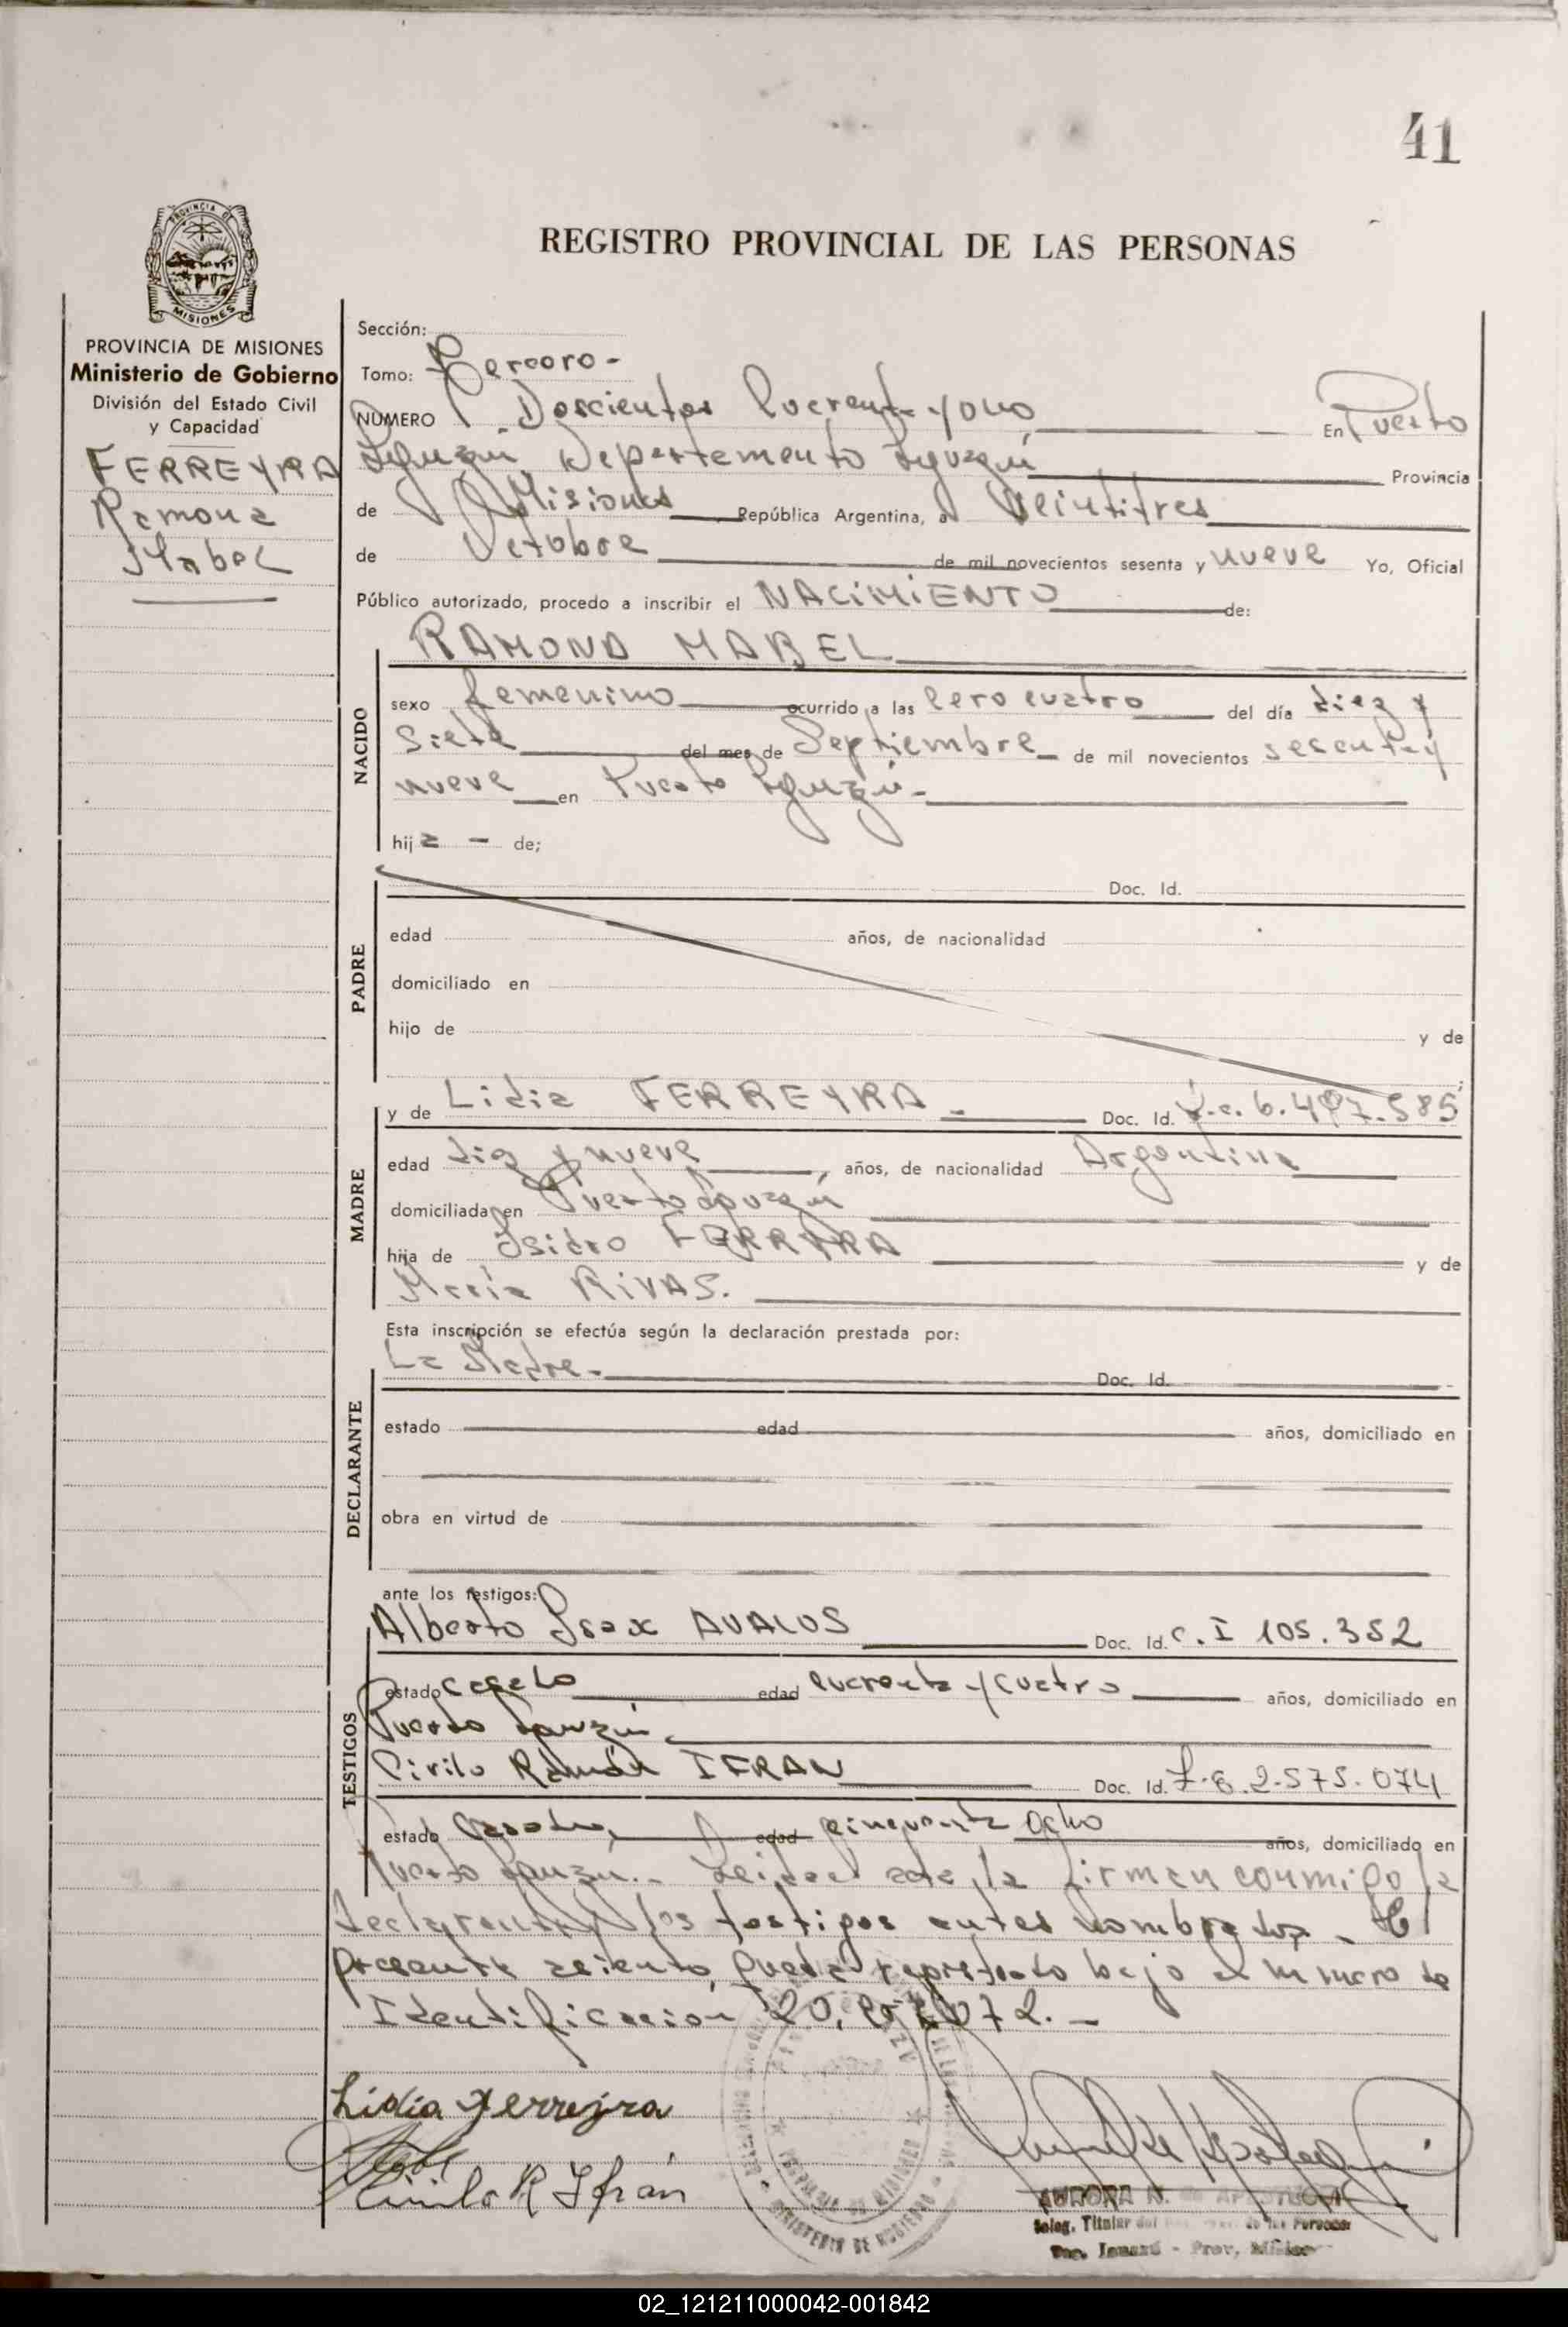 41
REGISTRO PROVINCIAL DE LAS PERSONAS
PROVINCIA DE
MISIONES
PROVINCIA DE MISIONES
Ministerio de Gobierno
División del Estado Civil
y Capacidad
FERREYRA
Ramona
Mabel
Sección:
Tomo: Tercero -
NUMERO Doscientos Cuarenta y uno En Puerto
Iguazú Departamento Iguazú Provincia
de Misiones República Argentina, a Veintitres
de Octubre de mil novecientos sesenta y nueve Yo, Oficial
Público autorizado, procedo a inscribir el NACIMIENTO de:
RAMONA MABEL
NACIDO
sexo femenino ocurrido a las Cero cuatro del día diez y
siete del mes de Septiembre de mil novecientos sesenta y
nueve en Puerto Iguazú -
hija - de;
PADRE
Doc. Id.
edad años, de nacionalidad
domiciliado en
hijo de y de
MADRE
y de Lidia FERREYRA - Doc. Id. 6.497.585
edad diez y nueve, años, de nacionalidad Argentina
domiciliada en Puerto Iguazú
hija de Isidro y de
María RIVAS.
Esta inscripción se efectúa según la declaración prestada por:
La Madre - Doc. Id.
DECLARANTE
estado edad años, domiciliado en
obra en virtud de
ante los testigos:
TESTIGOS
Alberto Isax AVALOS Doc. Id. C. I 105.352
estado casado edad cuarenta y cuatro años, domiciliado en
Puerto Iguazú
Cirilo Ramón IFRAN Doc. Id. 2.575.074
estado edad cincuenta ocho años, domiciliado en
Puerto Iguazú.- Leida el acta, la firman conmigo la
declarante y los testigos antes nombrados - El
presente asiento queda registrado bajo el numero de
Identificación 20.
Lidia Ferreyra
Cirilo R Ifrán
MINISTERIO DE GOBIERNO
PROVINCIA DE MISIONES
AURORA N. de
Deleg. Titular del de las Personas
Pto. Iguazú - Prov. Misiones
02_121211000042-001842